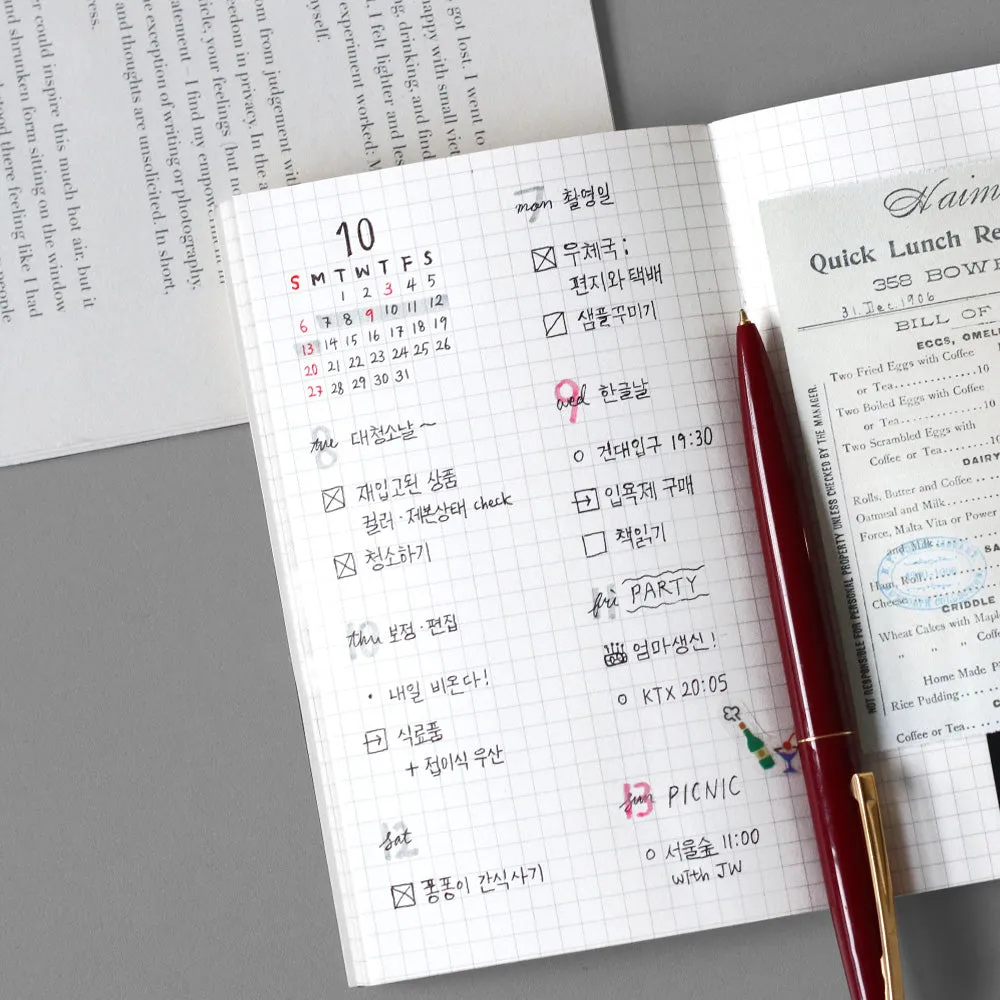 10
S M T W T F S
1 2 3 4 5
6 7 8 9 10 11 12
13 14 15 16 17 18 19
20 21 22 23 24 25 26
27 28 29 30 31
7
mon 촬영일
우체국:
편지와 택배
샘플꾸미기
8
tue 대청소날~
재입고된 상품
컬러·제본상태 check
청소하기
9
wed 한글날
건대입구 19:30
입욕제 구매
책읽기
10
thu 보정·편집
· 내일 비온다!
식료품
+ 접이식 우산
11
fri PARTY
엄마생신!
KTX 20:05
12
sat
퐁퐁이 간식사기
13
sun PICNIC
서울숲 11:00
with JW
Quick Lunch
358
31. Dec. 1906
BILL OF
EGGS,
Two Fried Eggs with Coffee
or Tea..............10
Two Boiled Eggs with Coffee
or Tea..............10
Two Scrambled Eggs with
Coffee or Tea..........
DAIRY
Rolls, Butter and Coffee
Oatmeal and Milk
Force, Malta Vita or Power
and Milk
Ham, Roll
Cheese
CRIDDLE
Wheat Cakes with
" " Coffee
Home Made
Rice Pudding....
Coffee or Tea...
NOT RESPONSIBLE FOR PERSONAL PROPERTY UNLESS CHECKED BY THE MANAGER.
got lost. I went to
happy with small
ng, drinking, and find
I felt lighter and les
experiment worked:
myself.
om from judgement
eedom in privacy. In the
icle, your feelings (but
atement – I find my
e exception of writing or photography,
and thoughts are unsolicited. In short,
ress.
er could inspire this much hot air, but it
and shrunken form sitting on the window
stood there feeling like I had
people